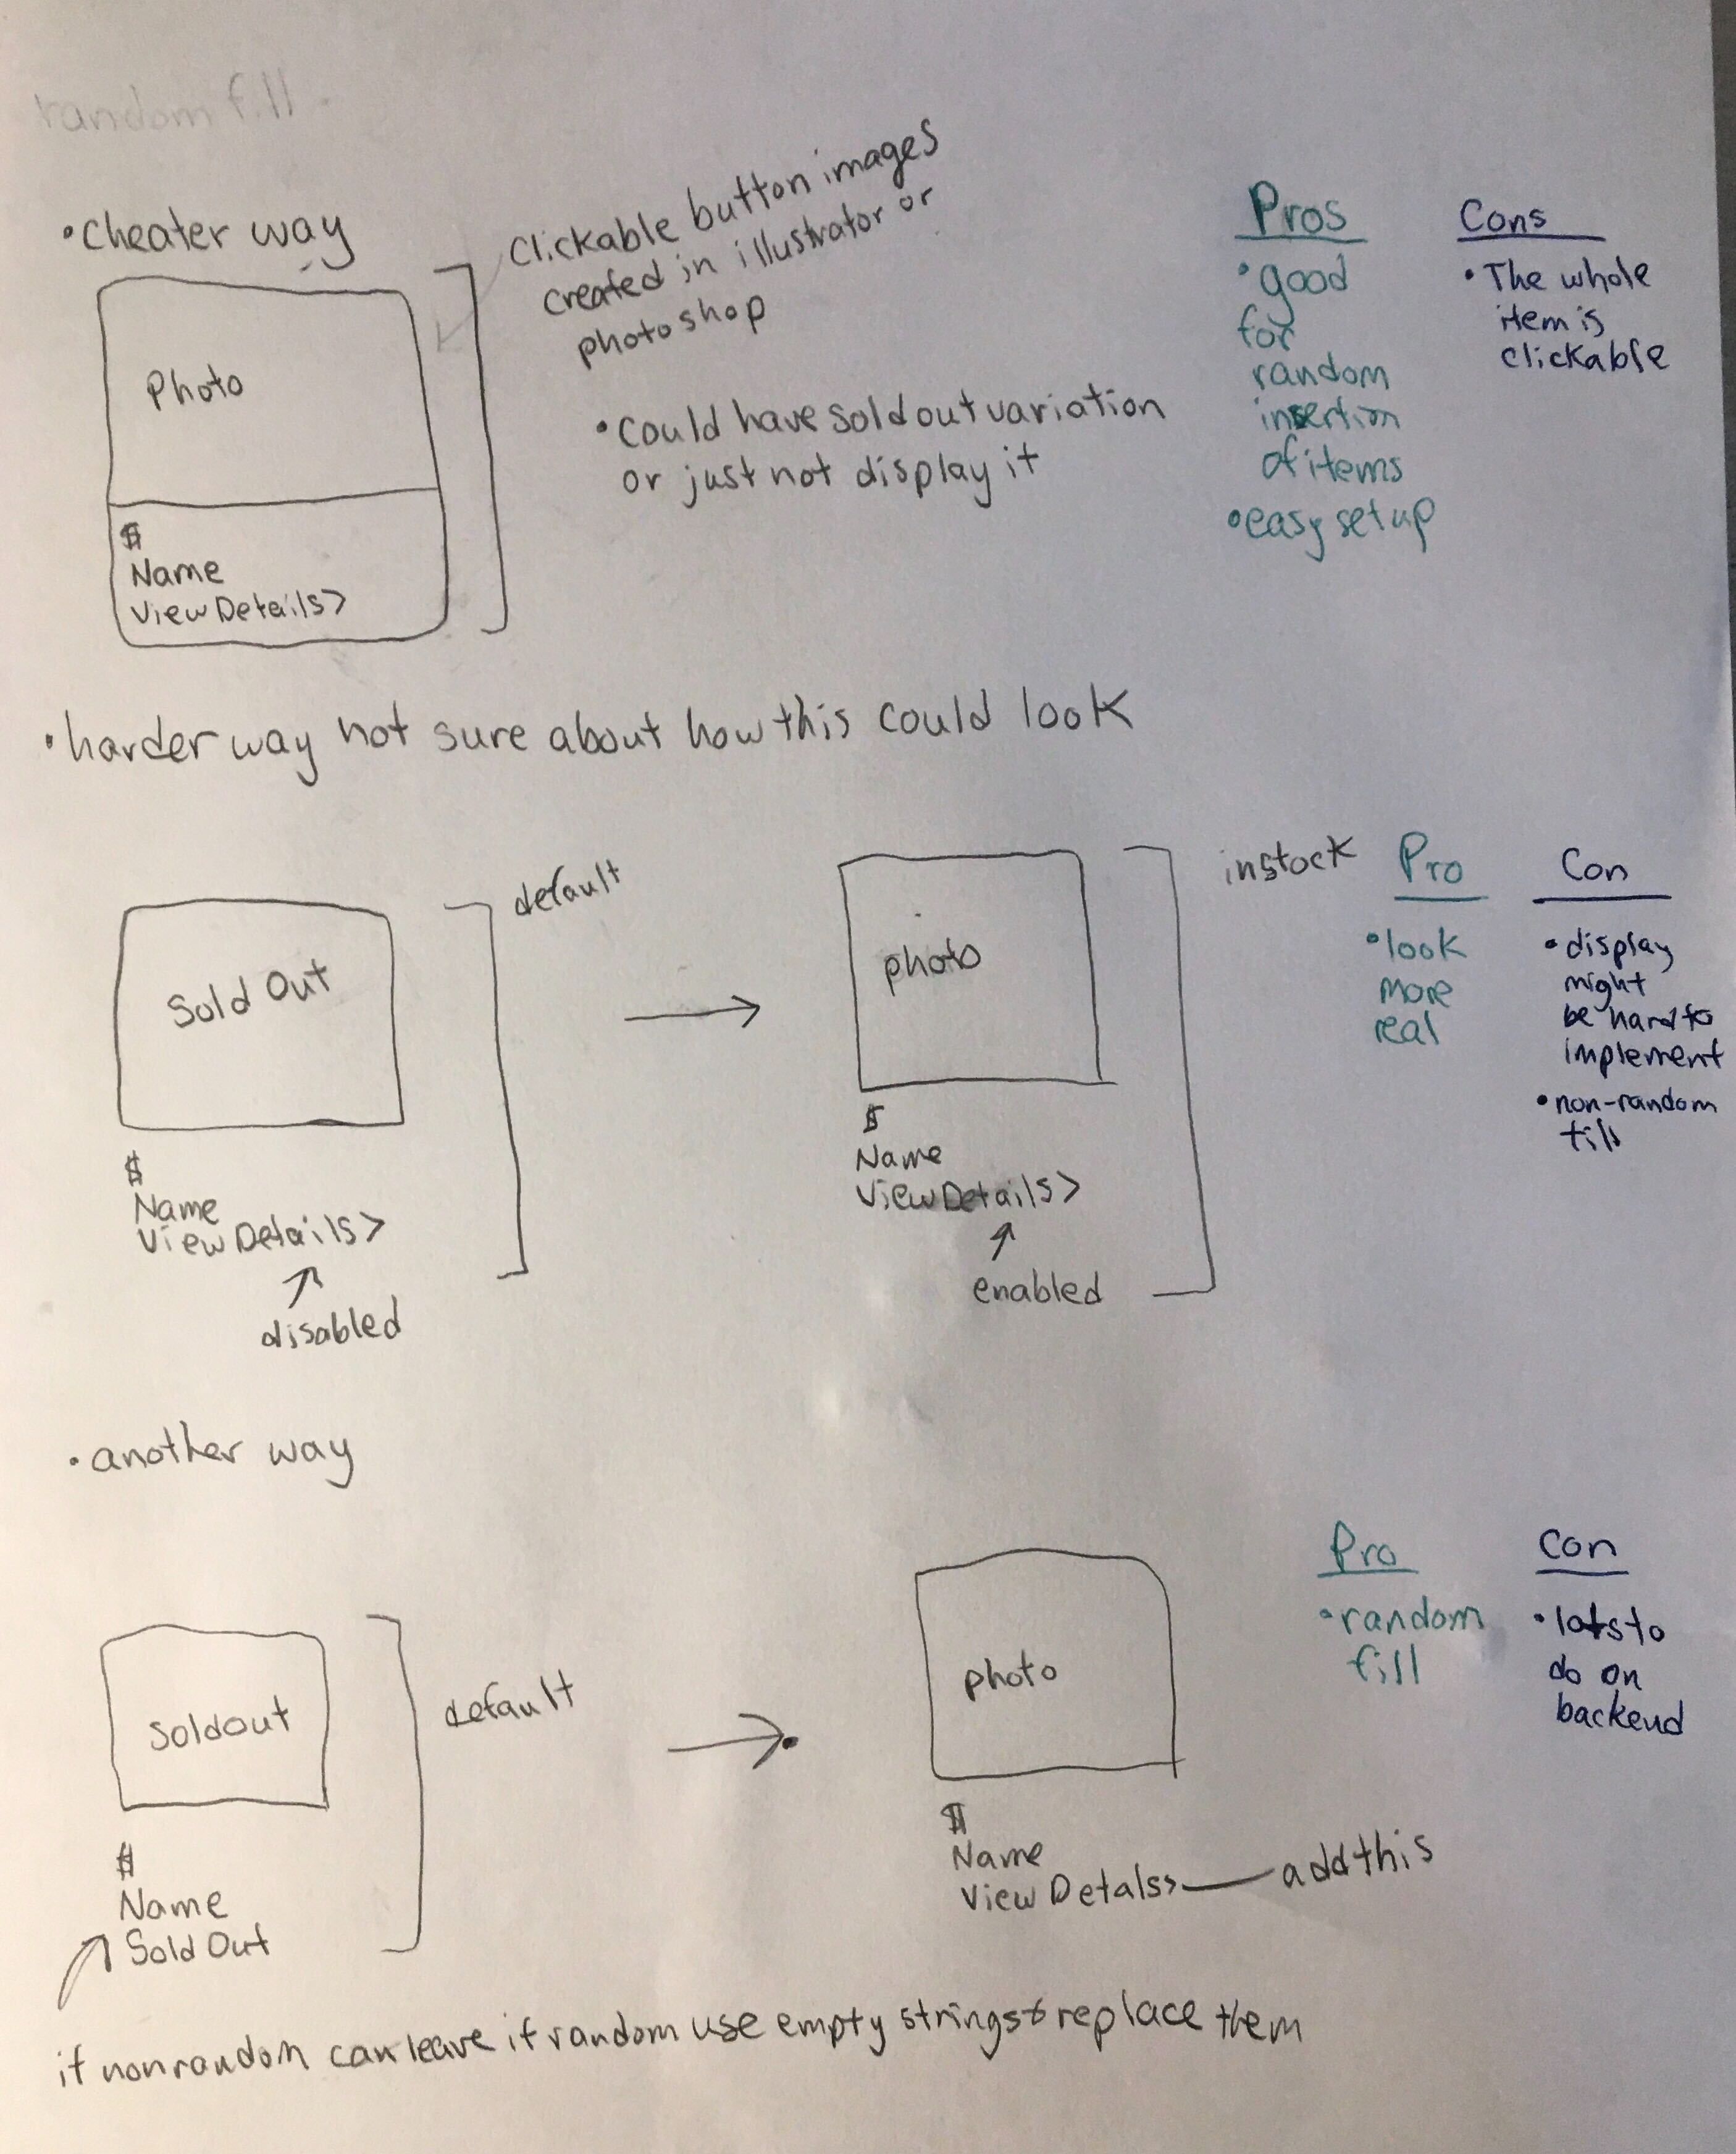 random fill.
• cheater way
Clickable button images
created in illustrator or
photoshop
Photo
$
Name
View Details>
• Could have sold out variation
or just not display it
Pros
• good
for
random
insertion
of items
• easy set up
Cons
• The whole
item is
clickable
• harder way not sure about how this could look
Sold Out
default
$
Name
View Details>
disabled
photo
instock
$
Name
View Details>
enabled
Pro
• look
more
real
Con
• display
might
be hard to
implement
• non-random
fill
• another way
soldout
default
$
Name
Sold Out
photo
$
Name
View Detals>
add this
Pro
• random
fill
Con
• lots to
do on
backend
if nonrandom can leave if random use empty strings & replace them